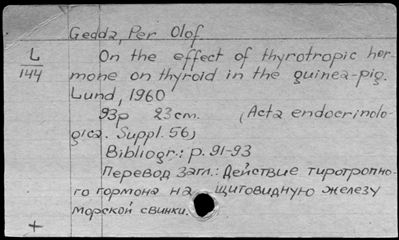 Gedda, Per Olof
L
144
On the effect of thyrotropic hor-
mone on thyroid in the guinea-pig.
Lund, 1960
93p 23 cm. (Acta endocrinolo-
gica. Suppl. 56)
Bibliogr.: p. 91-93
Перевод загл.: Действие тиротропно-
го гормона на щитовидную железу
морской свинки.
+